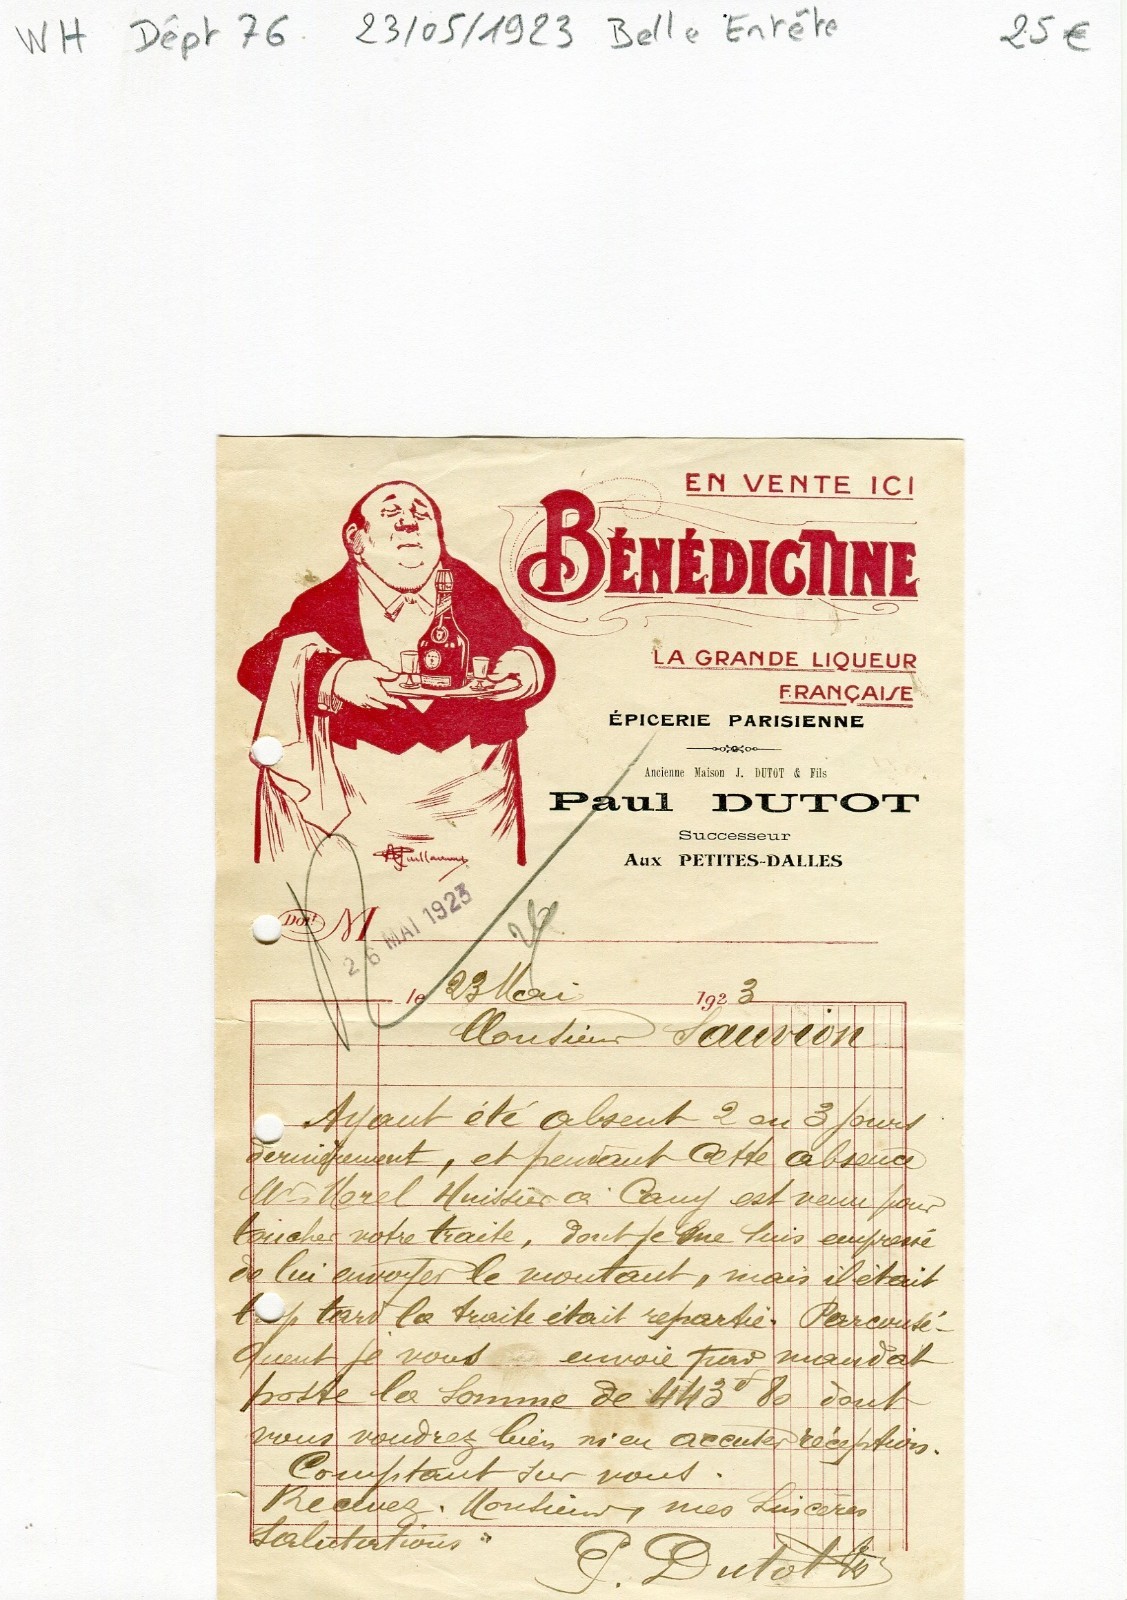 WH Dépt 76 23/05/1923 Belle Entête 25 €
EN VENTE ICI
BÉNÉDICTINE
LA GRANDE LIQUEUR
FRANÇAISE
ÉPICERIE PARISIENNE
Ancienne Maison J. DUTOT & Fils
Paul DUTOT
Successeur
Aux PETITES-DALLES
Guillaume
Doit M
26 MAI 1923
le 23 Mai 1923
Monsieur Sauvion
Ayant été absent 2 ou 3 jours
dernièrement, et pendant cette absence
Morel Huissier à Cany est venu pour
toucher votre traite, dont je me suis empressé
de lui envoyer le montant, mais il était
trop tard la traite était repartie. Par consé-
quent je vous envoie mandat
poste la somme de 443 80 dont
vous voudrez bien m'en accuser réception.
Comptant sur vous.
Recevez, Monsieur, mes sincères
salutations
P. Dutot